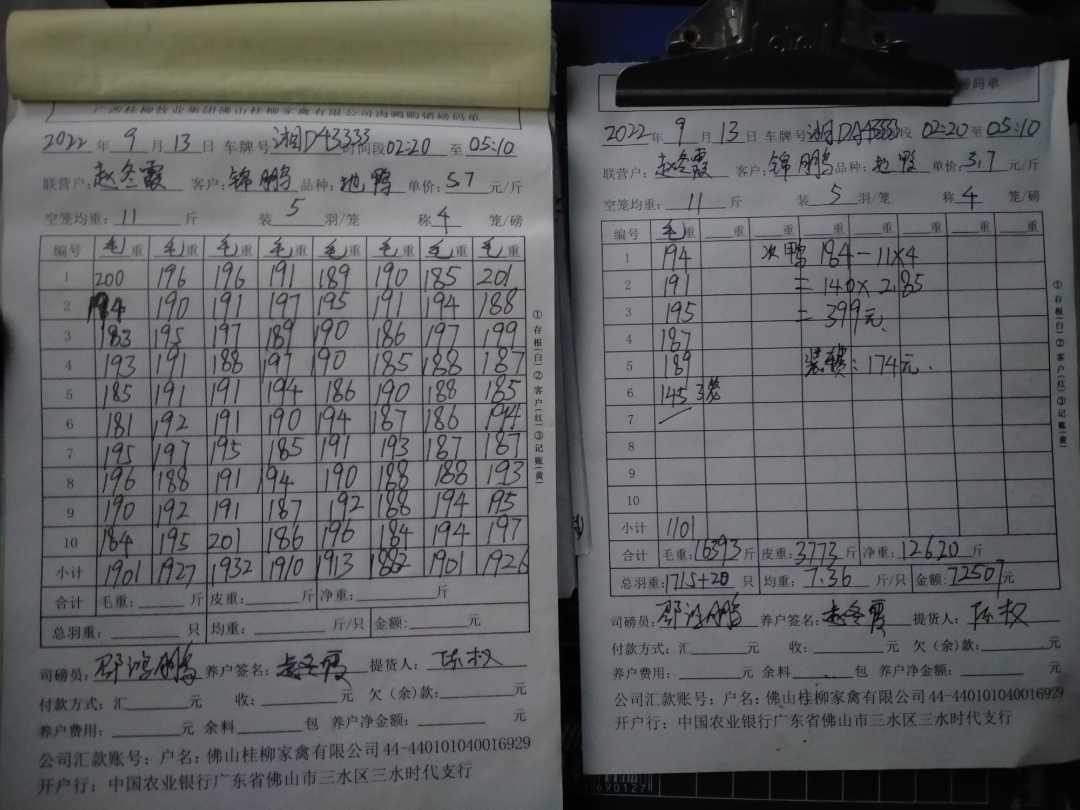 广西桂柳牧业集团佛山桂柳家禽有限公司肉鸭购销磅码单
2022年 9月 13日 车牌号湘DA3333时间段02:20至05:10
联营户:赵冬霞 客户:锦鹏 品种:地鸭 单价:5.7元/斤
空笼均重:11斤 装5羽/笼 称4笼/磅
编号 毛重 毛重 毛重 毛重 毛重 毛重 毛重 毛重
1 200 196 196 191 189 190 185 201
2 184 190 191 197 195 191 194 188
3 183 195 197 189 190 186 197 199
4 193 191 188 197 190 185 188 187
5 185 191 191 194 186 190 188 185
6 181 192 191 190 194 187 186 194
7 195 197 195 185 191 193 187 187
8 196 188 191 194 190 188 188 193
9 190 192 191 187 192 188 194 195
10 184 195 201 186 196 184 194 197
小计 1901 1927 1932 1910 1913 1882 1901 1926
合计 毛重:斤 皮重:斤 净重:斤
总羽重:只 均重:斤/只 金额:元
司磅员:邵鸿鹏 养户签名:赵冬霞 提货人:陈权
付款方式:汇元 收:元 欠(余)款:元
养户费用:元 余料包 养户净金额:元
公司汇款账号:户名:佛山桂柳家禽有限公司44-440101040016929
开户行:中国农业银行广东省佛山市三水区三水时代支行
①存根(白)②客户(红)③记账(黄)
磅码单
2022年 9月 13日 车牌号湘DA3333段 02:20至05:10
联营户:赵冬霞 客户:锦鹏 品种:地鸭 单价:5.7元/斤
空笼均重:11斤 装5羽/笼 称4笼/磅
编号 毛重 重 重 重 重 重 重 重
1 194 次鸭 184-11×4
2 191 =140×2.85
3 195 =399元
4 187
5 189 装费:174元.
6 145 3笼
7
8
9
10
小计 1101
合计 毛重:16393斤 皮重:3773斤 净重:12620斤
总羽重:1715+20只 均重:7.36斤/只 金额:72507元
司磅员:邵鸿鹏 养户签名:赵冬霞 提货人:陈权
付款方式:汇元 收:元 欠(余)款:元
养户费用:元 余料包 养户净金额:元
公司汇款账号:户名:佛山桂柳家禽有限公司44-440101040016929
开户行:中国农业银行广东省佛山市三水区三水时代支行
①存根(白)②客户(红)③记账(黄)
690127